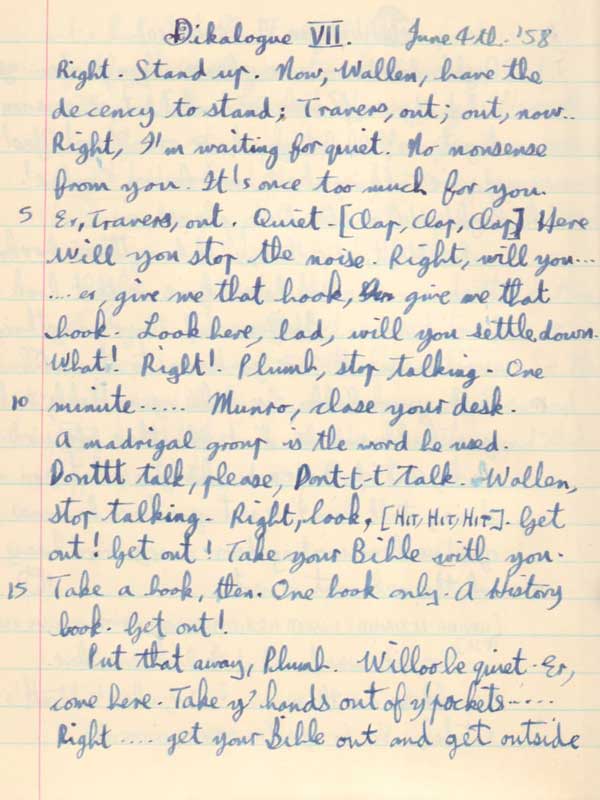 Dikalogue VII. June 4th. '58
Right. Stand up. Now, Wallen, have the
decency to stand; Travers, out; out, now..
Right, I'm waiting for quiet. No nonsense
from you. It's once too much for you.
5 Er, Travers, out. Quiet - [Clap, Clap, Clap] Here
will you stop the noise. Right, will you...
... er, give me that book, give me that
book. Look here, lad, will you settle down.
What! Right! Plumb, stop talking. One
10 minute..... Munro, close your desk.
A madrigal group is the word he used.
Donttt talk, please, Dont-t-t Talk. Wallen,
stop talking. Right, look, [HIT, HIT, HIT]. Get
out! Get out! Take your Bible with you.
15 Take a book, then. One book only. A History
book. Get out!
Put that away, Plumb. Willoo be quiet. Er,
come here. Take y' hands out of y' pockets.....
Right .... get your Bible out and get outside